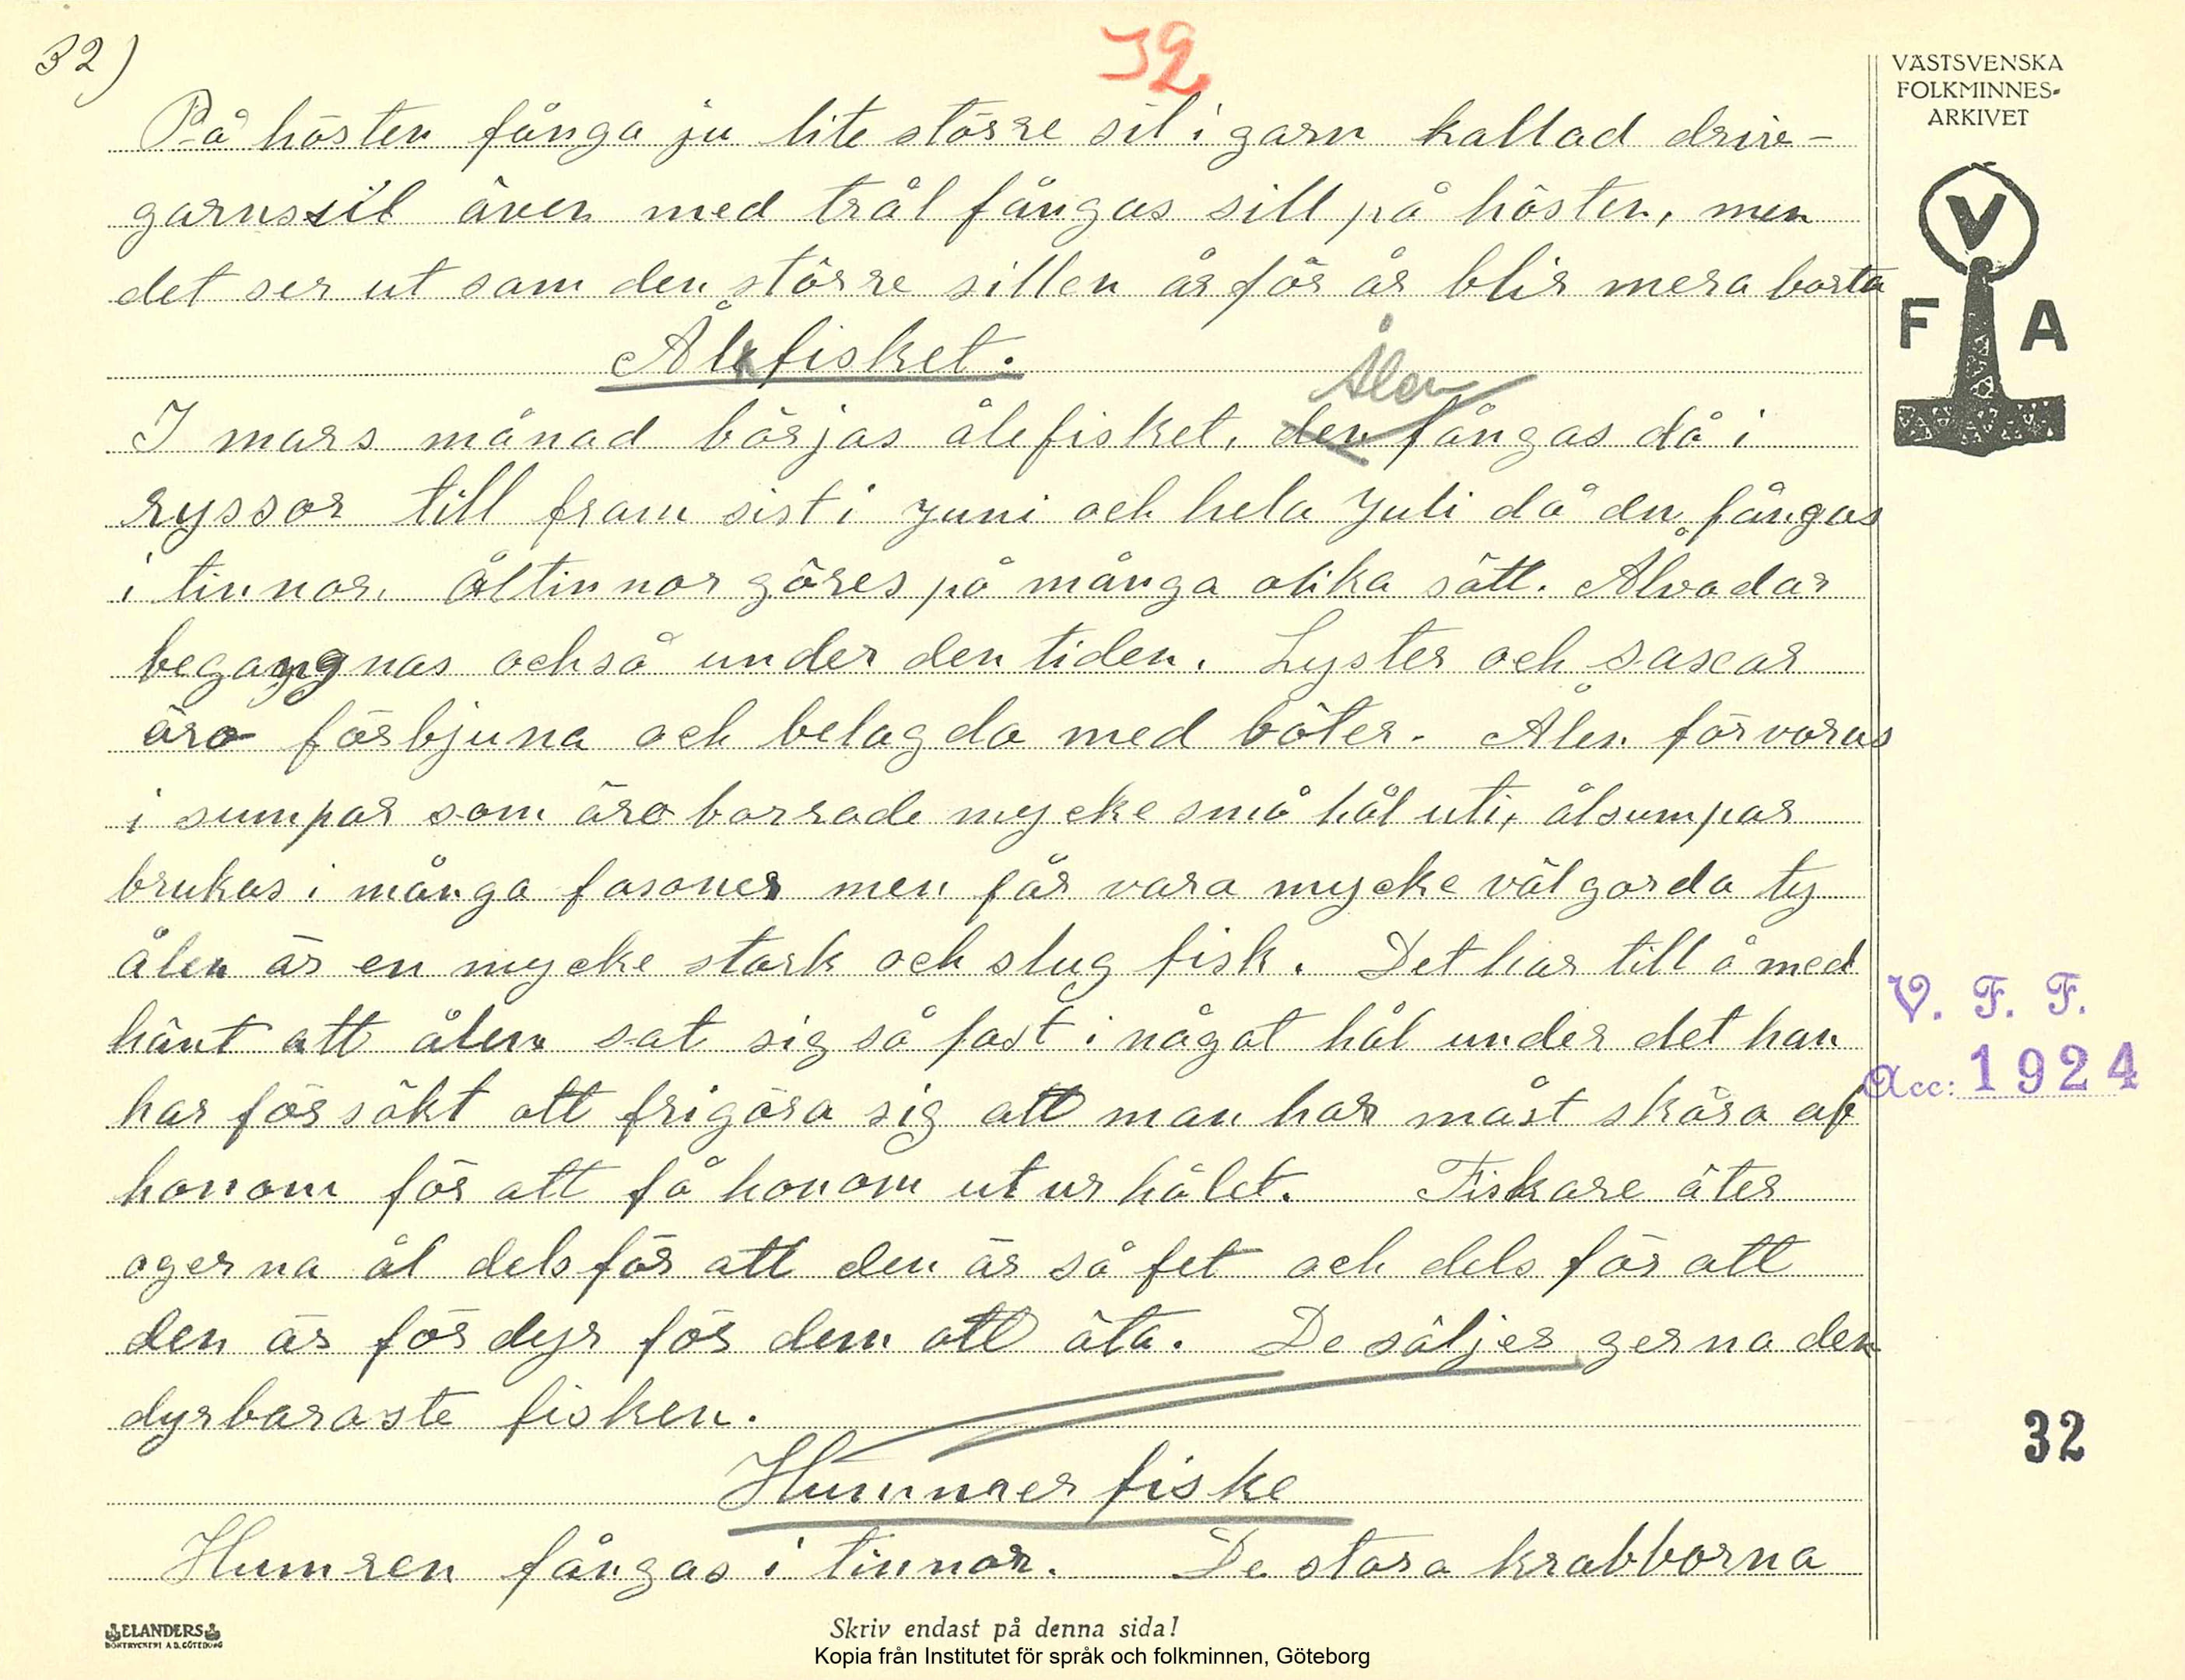 32)
32
På hösten fånga ju lite större sil i garn kallad driv-
garnssil även med trål fångas sill på hösten, men
det ser ut som den större sillen år för år blir mera borta
Ålefisket.
Ålen
I mars månad börjas ålefisket, den fångas då i
ryssor till fram sist i juni och hela Juli då den fångas
i tinnor. Åltinnor göres på många olika sätt. Ålvadar
begagnas också under den tiden. Lyster och saxar
äro förbjuna och belagda med böter. Ålen förvaras
i sumpar som äro borrade mycke små hål uti, ålsumpar
brukas i många fasoner men får vara mycke välgorda ty
ålen är en mycke stark och slug fisk. Det har till å med
hänt att ålen sat sig så fast i något hål under det han
har försökt att frigöra sig att man har måst skära af
honom för att få honom ut ur hålet. Fiskare äter
ogerna ål dels för att den är så fet och dels för att
den är för dyr för dem att äta. De säljer gerna den
dyrbaraste fisken.
Hummer fiske
Humren fångas i tinnor. De stora krabborna
VÄSTSVENSKA
FOLKMINNES-
ARKIVET
V
F A
V. F. F.
Acc: 1924
32
ELANDERS
BOKTRYCKERI A.B. GÖTEBORG
Skriv endast på denna sida!
Kopia från Institutet för språk och folkminnen, Göteborg